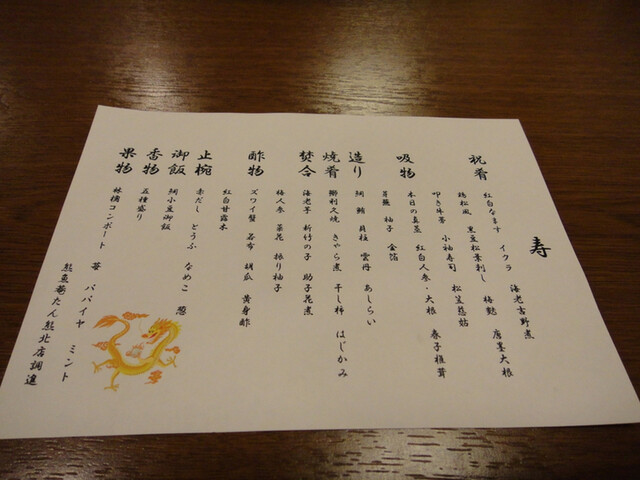 寿
祝肴 紅白なます イクラ 海老吉野煮
穂松風 黒豆松葉刺し 梅麩 唐墨大根
叩き牛蒡 小袖寿司 松笠慈姑
吸物 本日の真蒸 紅白人参・大根 春子椎茸
芽蕪 柚子 金箔
造り 鯛 鮪 貝柱 雲丹 あしらい
焼肴 鰤利久焼 きゃら煮 干し柿 はじかみ
焚合 海老芋 新竹の子 助子花煮
梅人参 菜花 振り柚子
酢物 ズワイ蟹 若布 胡瓜 黄身酢
紅白甘露木
止椀 赤だし とうふ なめこ 葱
御飯 鯛小豆御飯
香物 五種盛り
果物 林檎コンポート 苺 パパイヤ ミント
熊魚菴たん熊北店調進